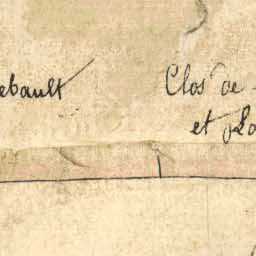 ebault
Clos de
et Lo